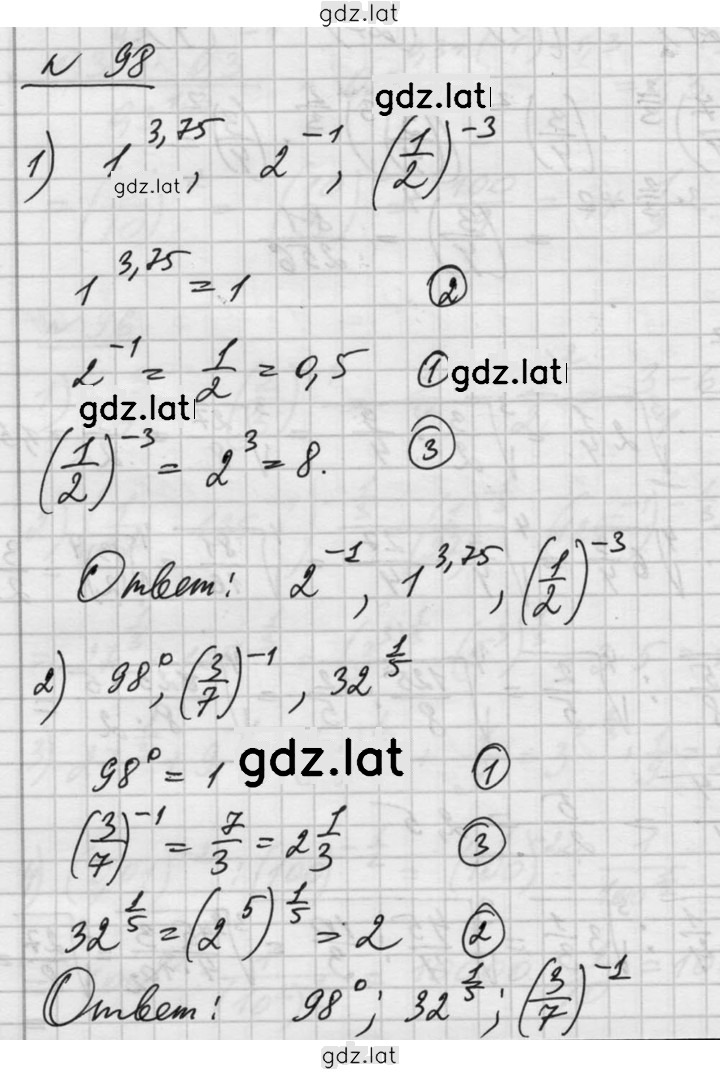 gdz.lat
№ 98
gdz.lat
1) 1^3,75, 2^-1, (1/2)^-3
gdz.lat
1^3,75 = 1 ②
2^-1 = 1/2 = 0,5 ① gdz.lat
gdz.lat
(1/2)^-3 = 2^3 = 8. ③
Ответ: 2^-1, 1^3,75, (1/2)^-3
2) 98^0, (3/7)^-1, 32^1/5
98^0 = 1 gdz.lat ①
(3/7)^-1 = 7/3 = 2 1/3 ③
32^1/5 = (2^5)^1/5 = 2 ②
Ответ: 98^0; 32^1/5; (3/7)^-1
gdz.lat